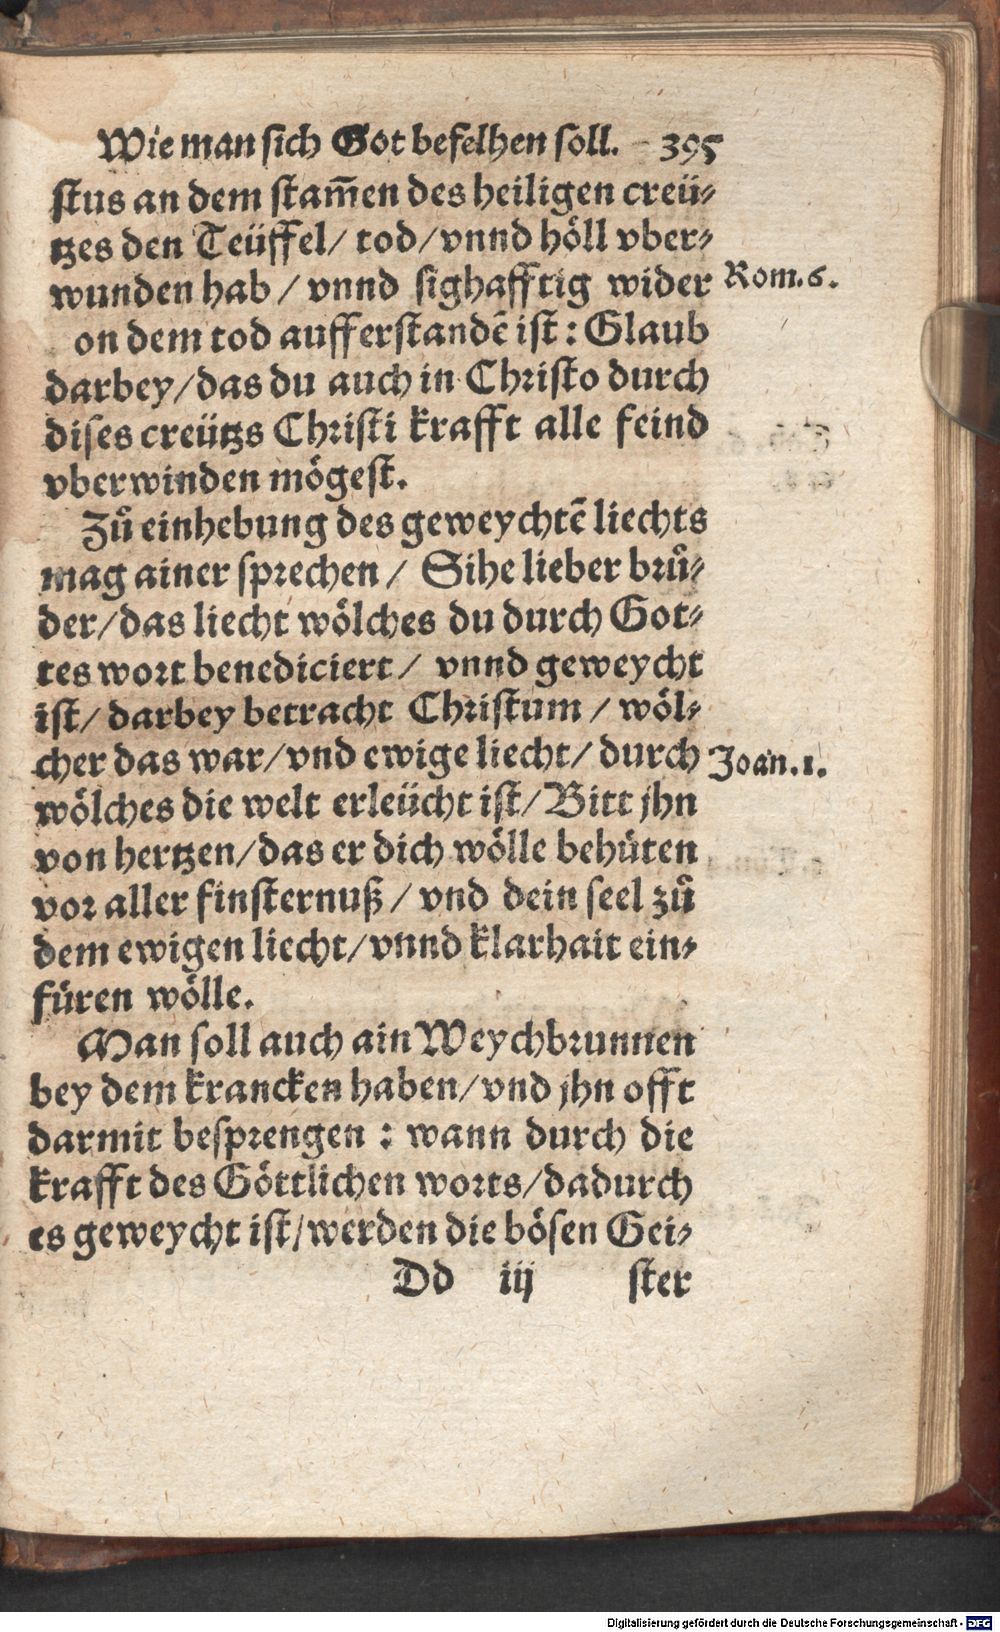 Wie man sich Got befelhen soll. 395
stus an dem stam̅en des heiligen creü⸗
tzes den Teüffel/ tod/ vnnd höll vber⸗
wunden hab / vnnd sighafftig wider
Rom. 6.
on dem tod aufferstandē ist : Glaub
darbey/das du auch in Christo durch
dises creützs Christi krafft alle feind
vberwinden mögest.
Zů einhebung des geweychtē liechts
mag ainer sprechen / Sihe lieber brů⸗
der/das liecht wölches du durch Got⸗
tes wort benediciert / vnnd geweycht
ist/ darbey betracht Christum / wöl⸗
cher das war/vnd ewige liecht/ durch
Joan. 1.
wölches die welt erleücht ist/ Bitt jhn
von hertzen/das er dich wölle behüten
vor aller finsternuß / vnd dein seel zů
dem ewigen liecht/vnnd klarhait ein⸗
füren wölle.
Man soll auch ain Weychbrunnen
bey dem krancken haben/vnd jhn offt
darmit besprengen : wann durch die
krafft des Göttlichen worts/dadurch
es geweycht ist/werden die bösen Gei⸗
Dd iij ster
Digitalisierung gefördert durch die Deutsche Forschungsgemeinschaft - DFG